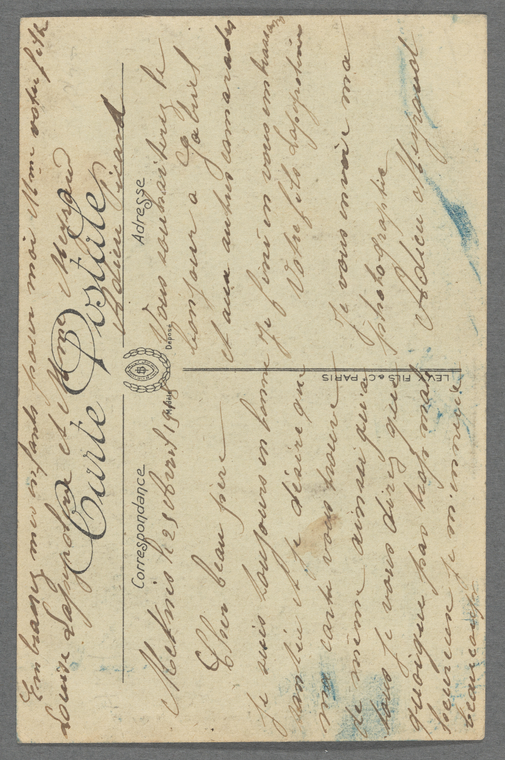 Embrassez mes enfants pour moi Mme votre fille
Louise Lapeyroline et Mme Meyrand
Adieu Picard
Carte Postale
Correspondance
Adresse
Déposé
Meknès le 25 Avril
Cher beau père
je suis toujours en bonne
santée et je désire que
ma carte vous trouve
de même ainsi qu'a
tous je vous direz que
quoique pas trop mal
je m'ennuie
beaucoup
Vous souhaiterez le
bonjour a
et aux autres camarades
Je fini en vous embrassant
Votre fils
Je vous envoie ma
photographie
Adieu Meyrand
LEVY FILS & Cie PARIS